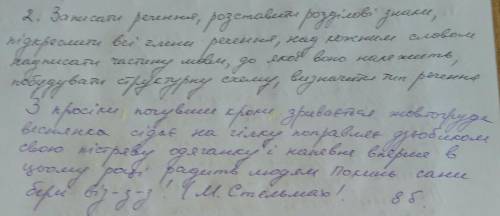 2. Записати речення, розставити розділові знаки,
підкреслити всі члени речення, над кожним словом
надписати частину мови, до якої воно належить,
побудувати структурну схему, визначити тип речення
З просіки почувши кроки зривається жовтогруда
веснянка сідає на гілку поправляє дзьобиком
свою пістряву одяганку і напевне вперше в
цьому році радить людям Покинь сани
бери віз-з-з! (М. Стельмах). 8 б.